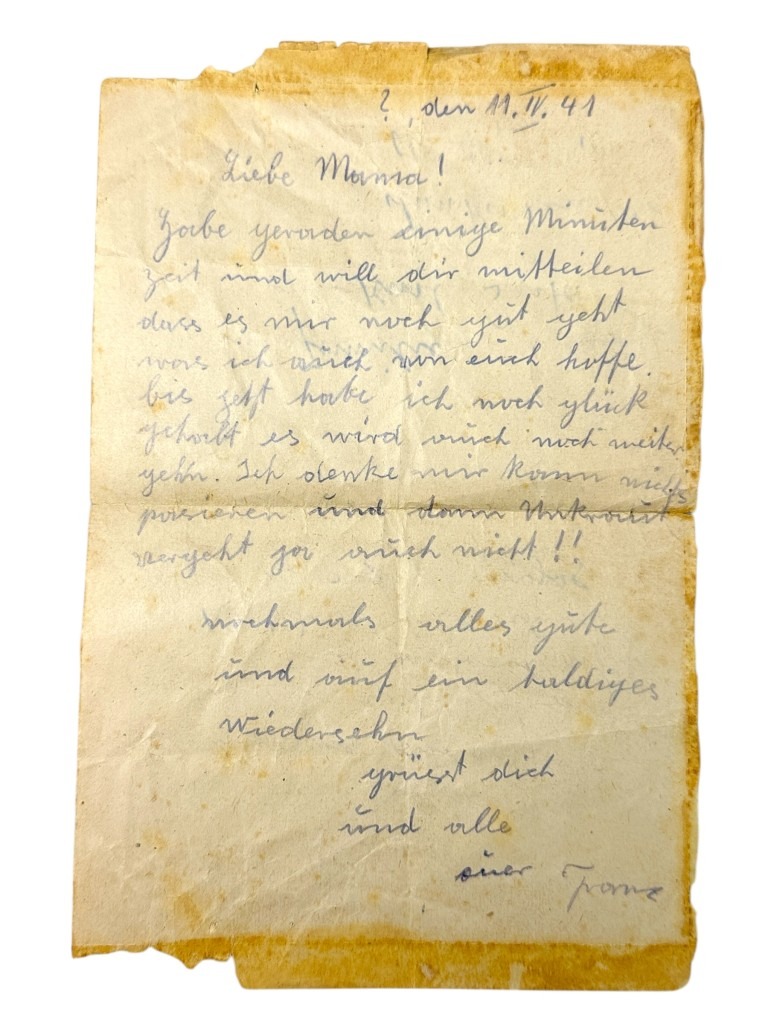 ? , den 11. IV. 41
Liebe Mama!
Habe geraden einige Minuten
zeit und will dir mitteilen
dass es mir noch gut geht
was ich auch von euch hoffe.
bis jetzt habe ich noch glück
gehabt es wird auch noch weiter
gehn. Ich denke mir kann nichts
pasieren und dann Unkraut
vergeht ja auch nicht!!
nochmals alles gute
und auf ein baldiges
Wiedersehn
grüsst dich
und alle
euer Franz